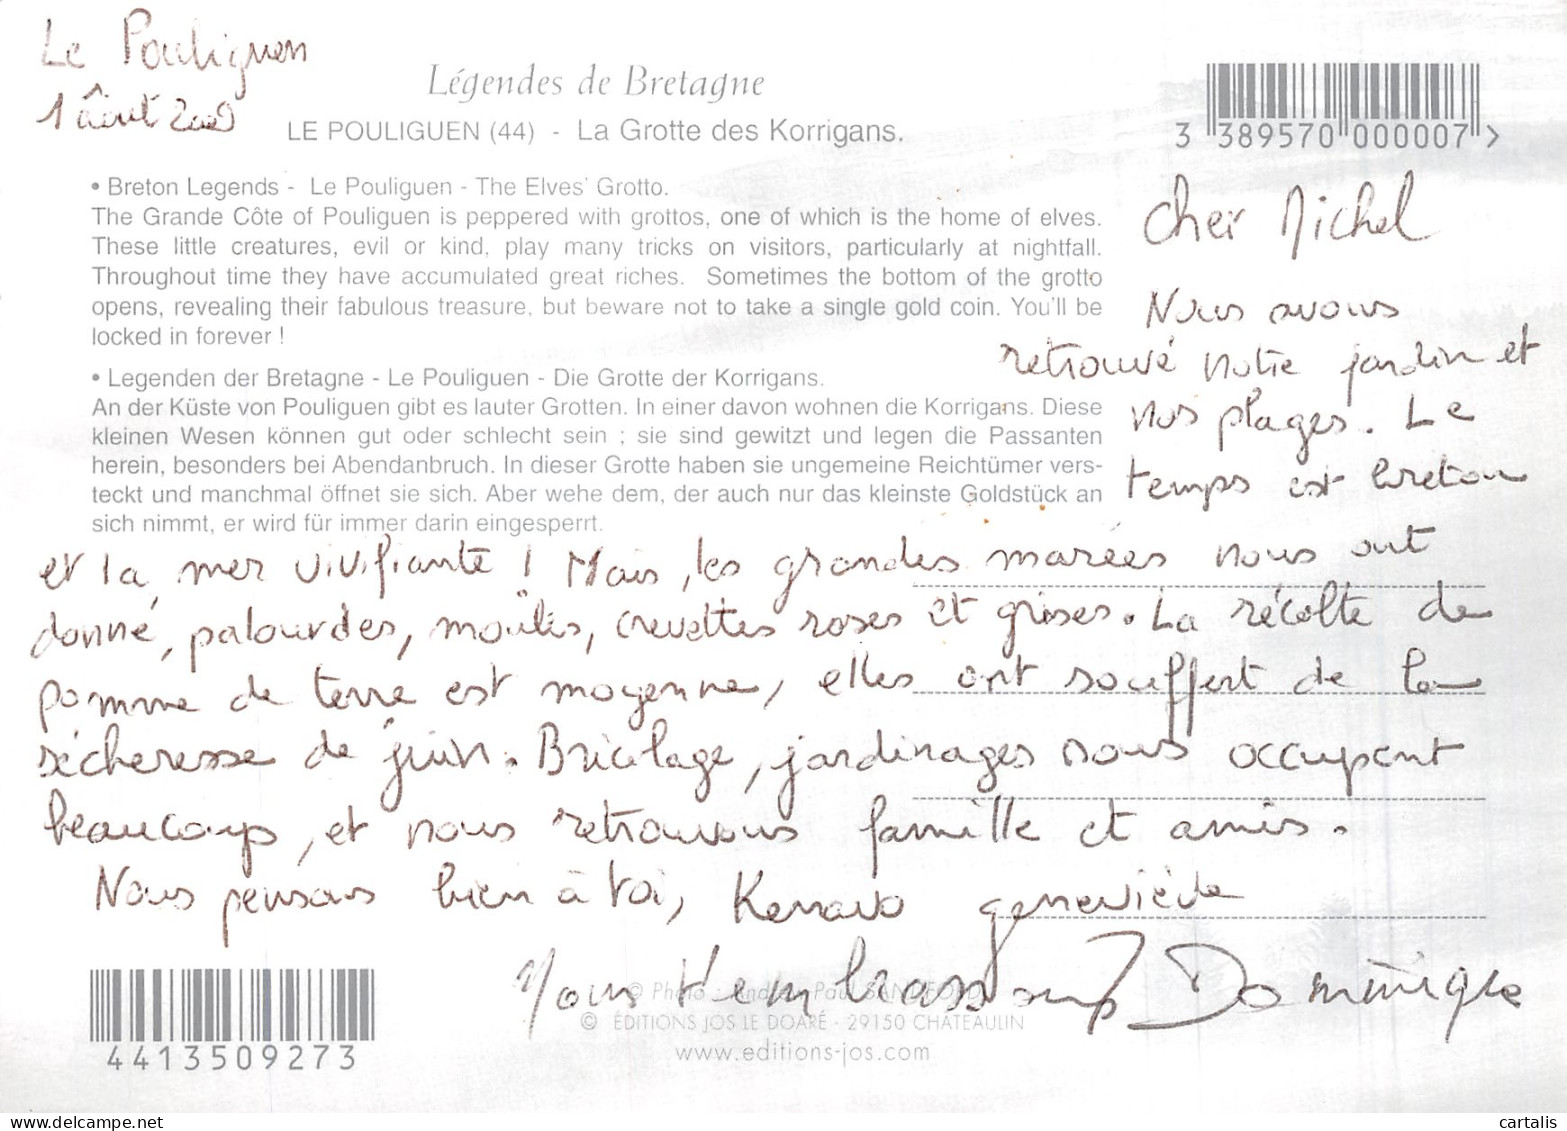 Le Pouliguen
1 Août 2009
Légendes de Bretagne
LE POULIGUEN (44) - La Grotte des Korrigans.
3 389570 000007 >
• Breton Legends - Le Pouliguen - The Elves' Grotto.
The Grande Côte of Pouliguen is peppered with grottos, one of which is the home of elves.
These little creatures, evil or kind, play many tricks on visitors, particularly at nightfall.
Throughout time they have accumulated great riches. Sometimes the bottom of the grotto
opens, revealing their fabulous treasure, but beware not to take a single gold coin. You'll be
locked in forever !
• Legenden der Bretagne - Le Pouliguen - Die Grotte der Korrigans.
An der Küste von Pouliguen gibt es lauter Grotten. In einer davon wohnen die Korrigans. Diese
kleinen Wesen können gut oder schlecht sein ; sie sind gewitzt und legen die Passanten
herein, besonders bei Abendanbruch. In dieser Grotte haben sie ungemeine Reichtümer vers-
teckt und manchmal öffnet sie sich. Aber wehe dem, der auch nur das kleinste Goldstück an
sich nimmt, er wird für immer darin eingesperrt.
Cher Michel
Nous avons
retrouvé notre jardin et
nos plages. Le
temps est breton
et la mer vivifiante ! Mais, les grandes marées nous ont
donné, palourdes, moules, crevettes roses et grises. La récolte de
pomme de terre est moyenne, elles ont souffert de la
sécheresse de juin. Bricolage, jardinages nous occupent
beaucoup, et nous retrouvons famille et amis.
Nous pensons bien à toi, Kenavo geneviève
Nous t'embrassons Dominique
4413509273
© Photo : Andrew Paul SANDFORD
© ÉDITIONS JOS LE DOARÉ - 29150 CHÂTEAULIN
www.editions-jos.com
cartalis